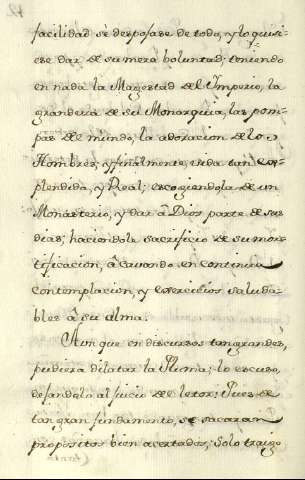 facilidad se desposase de todo, y lo quisi-
ese dar de su mera boluntad; teniendo
en nada la Magestad del Imperio, la
grandeza de su Monarquia, las pom-
pas de el mundo, la adoracion de los
Hombres, y finalmente, vida tan es-
plendida, y Real; escogiendola de un
Monasterio, y dar â Dios parte de sus
dias; haciendole sacrificio de su mor-
tificacion, acavando en continua
contemplacion, y exercicios saluda-
bles â su alma.
Aunque en discursos tan grandes,
pudiera dilatar la Pluma; lo escuso,
dejandolo al juicio de el letor: Pues de
tan gran fundamento, se sacaran
propositos bien acertados; solo traigo